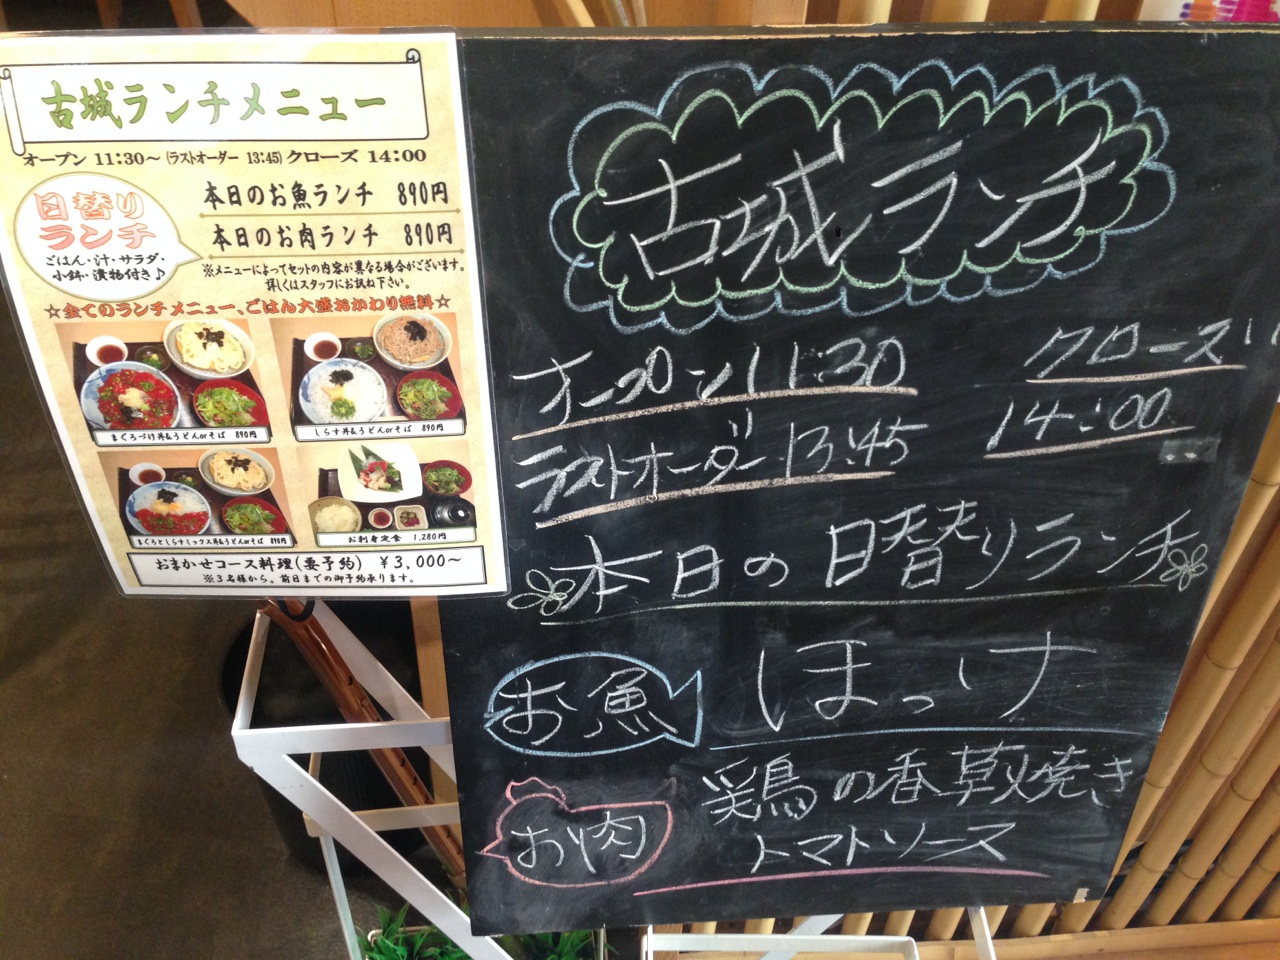 古城ランチメニュー
オープン 11:30～ (ラストオーダー 13:45) クローズ 14:00
日替り
ランチ
ごはん・汁・サラダ・
小鉢・漬物付き♪
本日のお魚ランチ 890円
本日のお肉ランチ 890円
※メニューによってセットの内容が異なる場合がございます。
詳しくはスタッフにお訊ね下さい。
☆全てのランチメニュー、ごはん大盛おかわり無料☆
まぐろづけ丼&うどんorそば 890円
しらす丼&うどんorそば 890円
まぐろとしらすミックス丼&うどんorそば 890円
お刺身定食 1,280円
おまかせコース料理(要予約) ￥3,000～
※3名様から、前日までの御予約承ります。
古城ランチ
オープン 11:30
クローズ
14:00
ラストオーダー 13:45
本日の日替りランチ
お魚
ほっけ
お肉
鶏の香草焼き
トマトソース